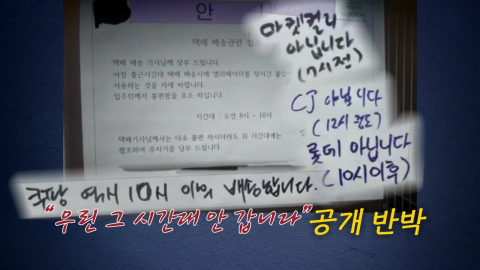 안
택배 배송관련 협조
택배 배송 기사님께 당부 드립니다.
아침 출근시간대 택배 배송시에 엘리베이터를 장시간
사용하는 것을 자제 바랍니다.
입주민께서 불편함을 호소 하십니다.
시간대 : 오전 8시 ~ 10시
택배기사님께서는 다소 불편 하시더라도 위 시간대에는
협조하여 주시기를 당부 드립니다.
마켓컬리
아닙니다
(7시전)
CJ 아닙니다
(12시 권도)
롯데 아닙니다
(10시이후)
쿠팡 역시 10시 이전 배송합니다.
“우린 그 시간대 안 갑니다” 공개 반박